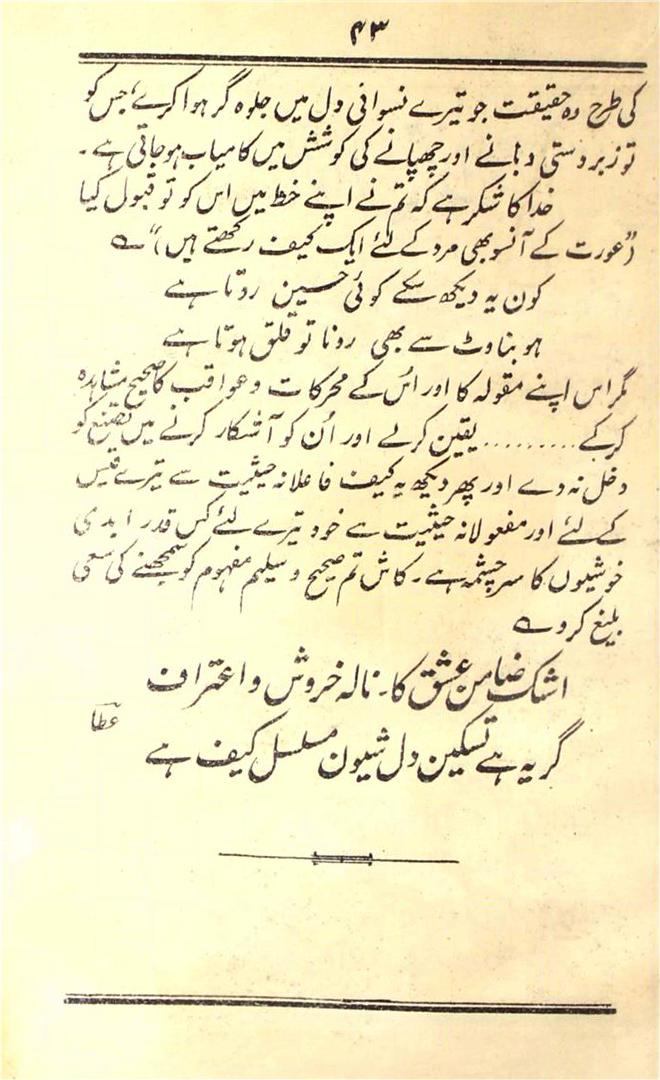 ۴۳
کی طرح وہ حقیقت جو تیرے نسوانی دل میں جلوہ گر ہوا کرے، جس کو
تو زبردستی دبانے اور چھپانے کی کوشش میں کامیاب ہو جاتی ہے۔
خدا کا شکر ہے کہ تم نے اپنے خط میں اس کو تو قبول کیا
("عورت کے آنسو بھی مرد کے لئے ایک کیف رکھتے ہیں")۔ ؎
کون یہ دیکھ سکے کوئی حسین روتا ہے
ہو بناوٹ سے بھی رونا تو قلق ہوتا ہے
مگر اس اپنے مقولہ کا اور اُس کے محرکات و عواقب کا صحیح مشاہدہ
کرکے ......... یقین کرلے اور اُن کو آشکار کرنے میں تصنع کو
دخل نہ دے اور پھر دیکھ یہ کیف فاعلانہ حیثیت سے تیرے قیس
کے لئے اور مفعولانہ حیثیت سے خود تیرے لئے کس قدر ابدی
خوشیوں کا سرچشمہ ہے۔ کاش تم صحیح و سلیم مفہوم کو سمجھنے کی سعی
بلیغ کرو ؎
اشک ضامن عشق کا۔ نالہ خروش و اعتراف
گریہ ہے تسکین دل شیون مسلسل کیف ہے
عطا